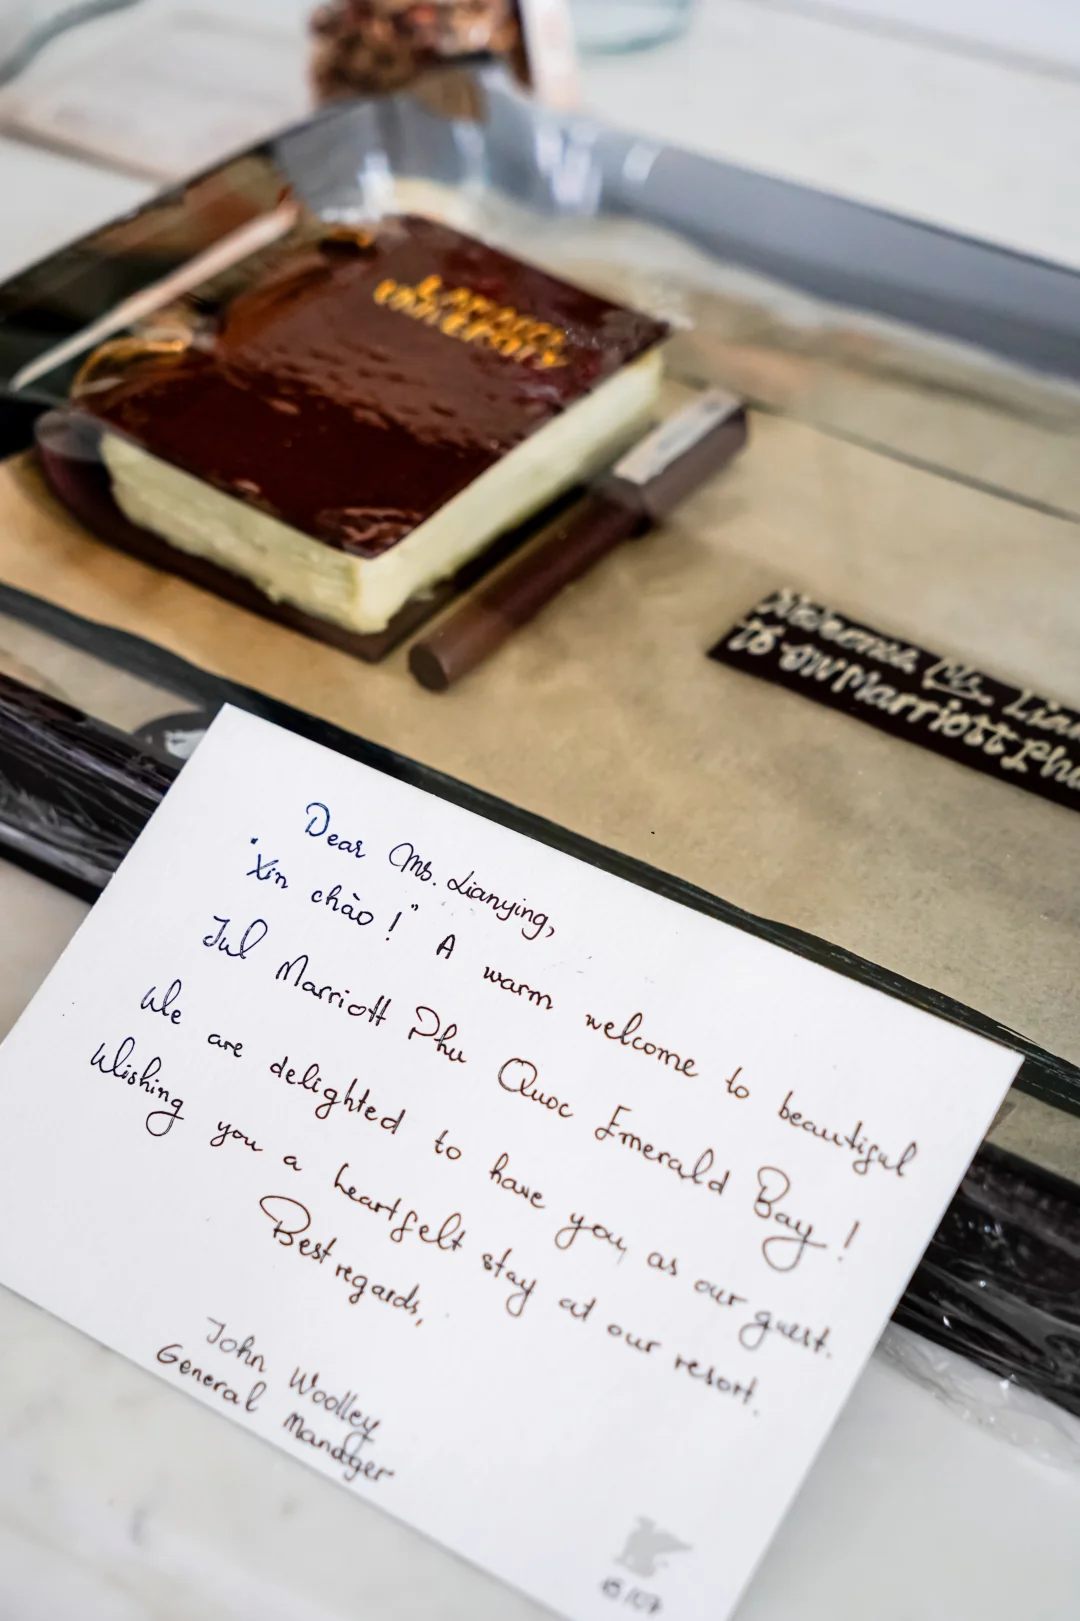 LAMARCK
UNIVERSITY
Welcome Ms. Lian
to JW Marriott Phu
Dear Ms. Lianying,
"Xin chào!" A warm welcome to beautiful
JW Marriott Phu Quoc Emerald Bay!
We are delighted to have you as our guest.
Wishing you a heartfelt stay at our resort.
Best regards,
John Woolley
General Manager